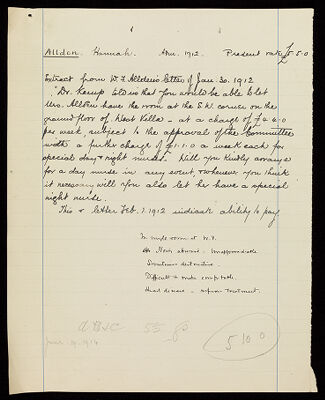 Alldon. Hannah. Adm. 1912. Present rate £5.5.0
Extract from W. F. Alldon's letter of Jan. 30. 1912
"Dr. Kemp tells us that you would be able to let
Mrs. Alldon have the room at the S.W. corner on the
ground floor of West Villa - at a charge of £4.4.0
per week, subject to the approval of the Committee
with a further charge of £1.1.0 a week each for
special day & night nurses. Will you kindly arrange
for a day nurse in any event, & whenever you think
it necessary will you also let her have a special
night nurse.
This & letter Feb. 1. 1912 indicate ability to pay
In single room at W.V.
Noisy, abusive - unapproachable
Sometimes destructive.
Difficult to make comfortable.
Head disease - refuses treatment.
5 10 0